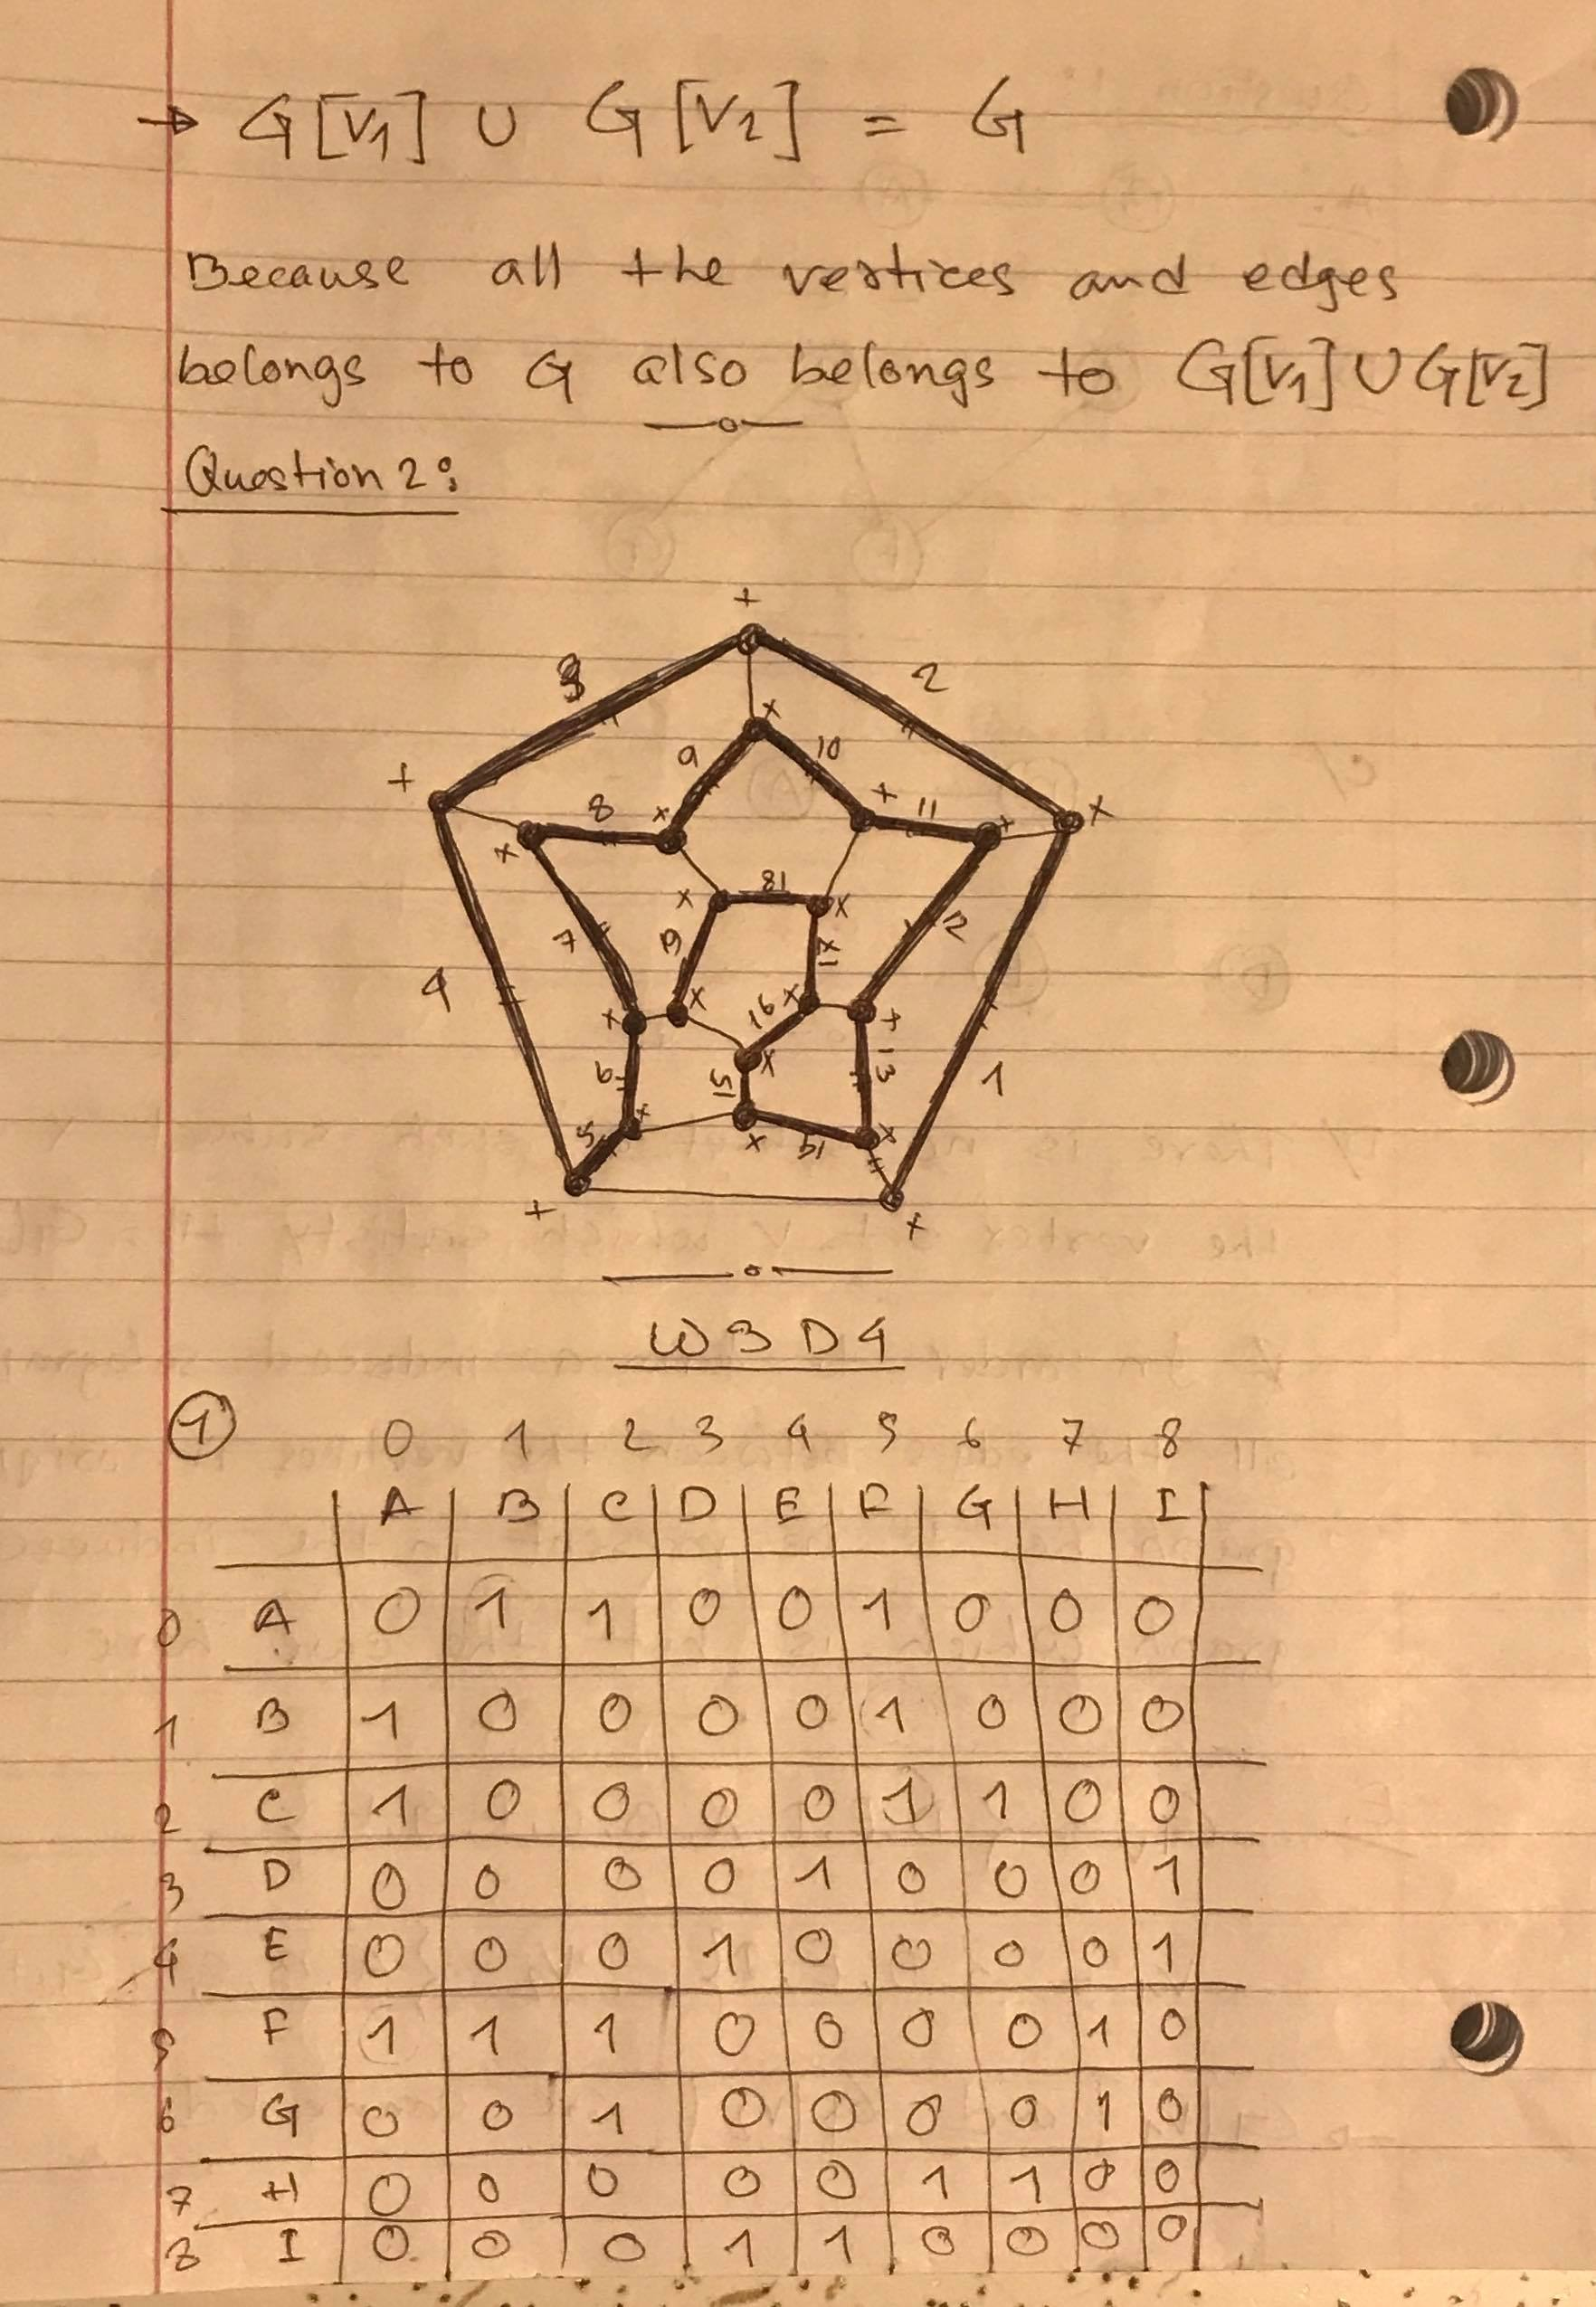 → G[V1] ∪ G[V2] = G
Because all the vertices and edges
belongs to G also belongs to G[V1] ∪ G[V2]
Question 2:
+
3 2
x
+ 9 10
8 x + 11 + x
x
x 18 x
7 19 17 2
4
x x 16 x +
6 15 x 13 1
x
5 x 14 x
+ x
W3D4
① 0 1 2 3 4 5 6 7 8
A B C D E F G H I
0 A 0 1 1 0 0 1 0 0 0
1 B 1 0 0 0 0 1 0 0 0
2 C 1 0 0 0 0 1 1 0 0
3 D 0 0 0 0 1 0 0 0 1
4 E 0 0 0 1 0 0 0 0 1
5 F 1 1 1 0 0 0 0 1 0
6 G 0 0 1 0 0 0 0 1 0
7 H 0 0 0 0 0 1 1 0 0
8 I 0 0 0 1 1 0 0 0 0